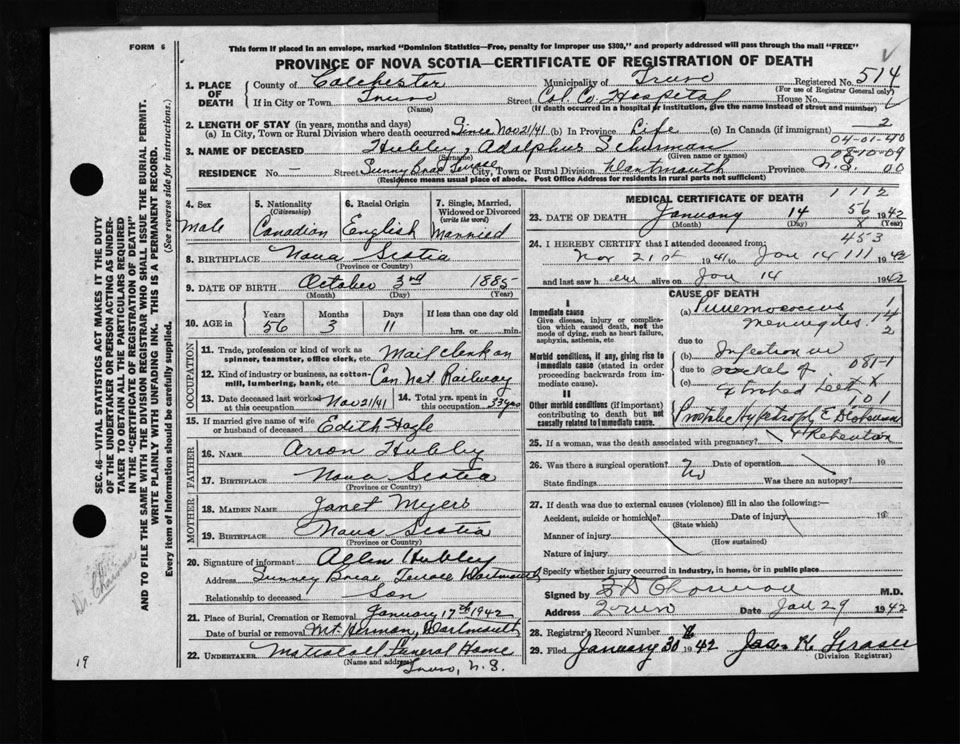 FORM 6
This form if placed in an envelope, marked "Dominion Statistics—Free, penalty for improper use $300," and properly addressed will pass through the mail "FREE"
PROVINCE OF NOVA SCOTIA—CERTIFICATE OF REGISTRATION OF DEATH
SEC. 46—VITAL STATISTICS ACT MAKES IT THE DUTY
OF THE UNDERTAKER OR PERSON ACTING AS UNDER-
TAKER TO OBTAIN ALL THE PARTICULARS REQUIRED
IN THE "CERTIFICATE OF REGISTRATION OF DEATH"
AND TO FILE THE SAME WITH THE DIVISION REGISTRAR WHO SHALL ISSUE THE BURIAL PERMIT.
WRITE PLAINLY WITH UNFADING INK. THIS IS A PERMANENT RECORD.
Every item of Information should be carefully supplied. (See reverse side for instructions.)
1. PLACE OF DEATH
County of Colchester Municipality of Truro Registered No. 514
(For use of Registrar General only)
If in City or Town Truro Street Col. Co. Hospital House No.
(Name) (If death occurred in a hospital or institution, give the name instead of street and number)
2. LENGTH OF STAY (in years, months and days) 2
(a) In City, Town or Rural Division where death occurred Since Nov 21/41 (b) In Province Life (c) In Canada (if immigrant)
04-01-40
3. NAME OF DECEASED Hubley, Adolphus Schurman 08-10-09
(Surname) (Given name or names)
RESIDENCE No. — Street Sunny Brae Terrace City, Town or Rural Division Dartmouth Province N.S. 00
(Residence means usual place of abode. Post Office Address for residents in rural parts not sufficient)
4. Sex Male
5. Nationality (Citizenship) Canadian
6. Racial Origin English
7. Single, Married, Widowed or Divorced (write the word) Married
8. BIRTHPLACE Nova Scotia
(Province or Country)
9. DATE OF BIRTH October 3rd 1885
(Month) (Day) (Year)
10. AGE in Years 56 Months 3 Days 11 If less than one day old
hrs. or min.
OCCUPATION
11. Trade, profession or kind of work as
spinner, teamster, office clerk, etc. Mail clerk on
12. Kind of industry or business, as cotton-
mill, lumbering, bank, etc. Can Nat. Railway
13. Date deceased last worked at this occupation Nov 21/41 14. Total yrs. spent in this occupation 33 yrs
15. If married give name of wife
or husband of deceased Edith Hazle
FATHER
16. NAME Arron Hubley
17. BIRTHPLACE Nova Scotia
(Province or Country)
MOTHER
18. MAIDEN NAME Janet Myers
19. BIRTHPLACE Nova Scotia
(Province or Country)
20. Signature of informant Allen Hubley
Address Sunney Brae Terrace Dartmouth
Relationship to deceased Son
21. Place of Burial, Cremation or Removal January 17th 1942
Date of burial or removal Mt. Herman, Dartmouth
22. UNDERTAKER Funeral Home
(Name and address) Truro, N.S.
MEDICAL CERTIFICATE OF DEATH 1112
23. DATE OF DEATH January 14 56 1942
(Month) (Day) (Year)
453
24. I HEREBY CERTIFY that I attended deceased from:
Nov 21st 1941 to Jan 14 111 1942
and last saw h alive on Jan 14 1942
CAUSE OF DEATH
I
Immediate cause
Give disease, injury or complica-
tion which caused death, not the
mode of dying, such as heart failure,
asphyxia, asthenia, etc.
(a) Pneumococcus
meningitis
14
2
due to
Morbid conditions, if any, giving rise to
immediate cause (stated in order
proceeding backwards from im-
mediate cause).
(b) Infection in
due to sockets of
(c) extracted teeth
081-1
X X
II
Other morbid conditions (if important)
contributing to death but not
causally related to immediate cause.
101
Prostatic Hypertrophy
& Retention
25. If a woman, was the death associated with pregnancy?
26. Was there a surgical operation? No Date of operation 19
State findings Was there an autopsy?
27. If death was due to external causes (violence) fill in also the following:—
Accident, suicide or homicide? Date of injury 19
(State which)
Manner of injury
(How sustained)
Nature of injury
Specify whether injury occurred in industry, in home, or in public place
Signed by M.D.
Address Truro Date Jan 29 1942
28. Registrar's Record Number
29. Filed January 30th 1942
(Division Registrar)
Dr.
19